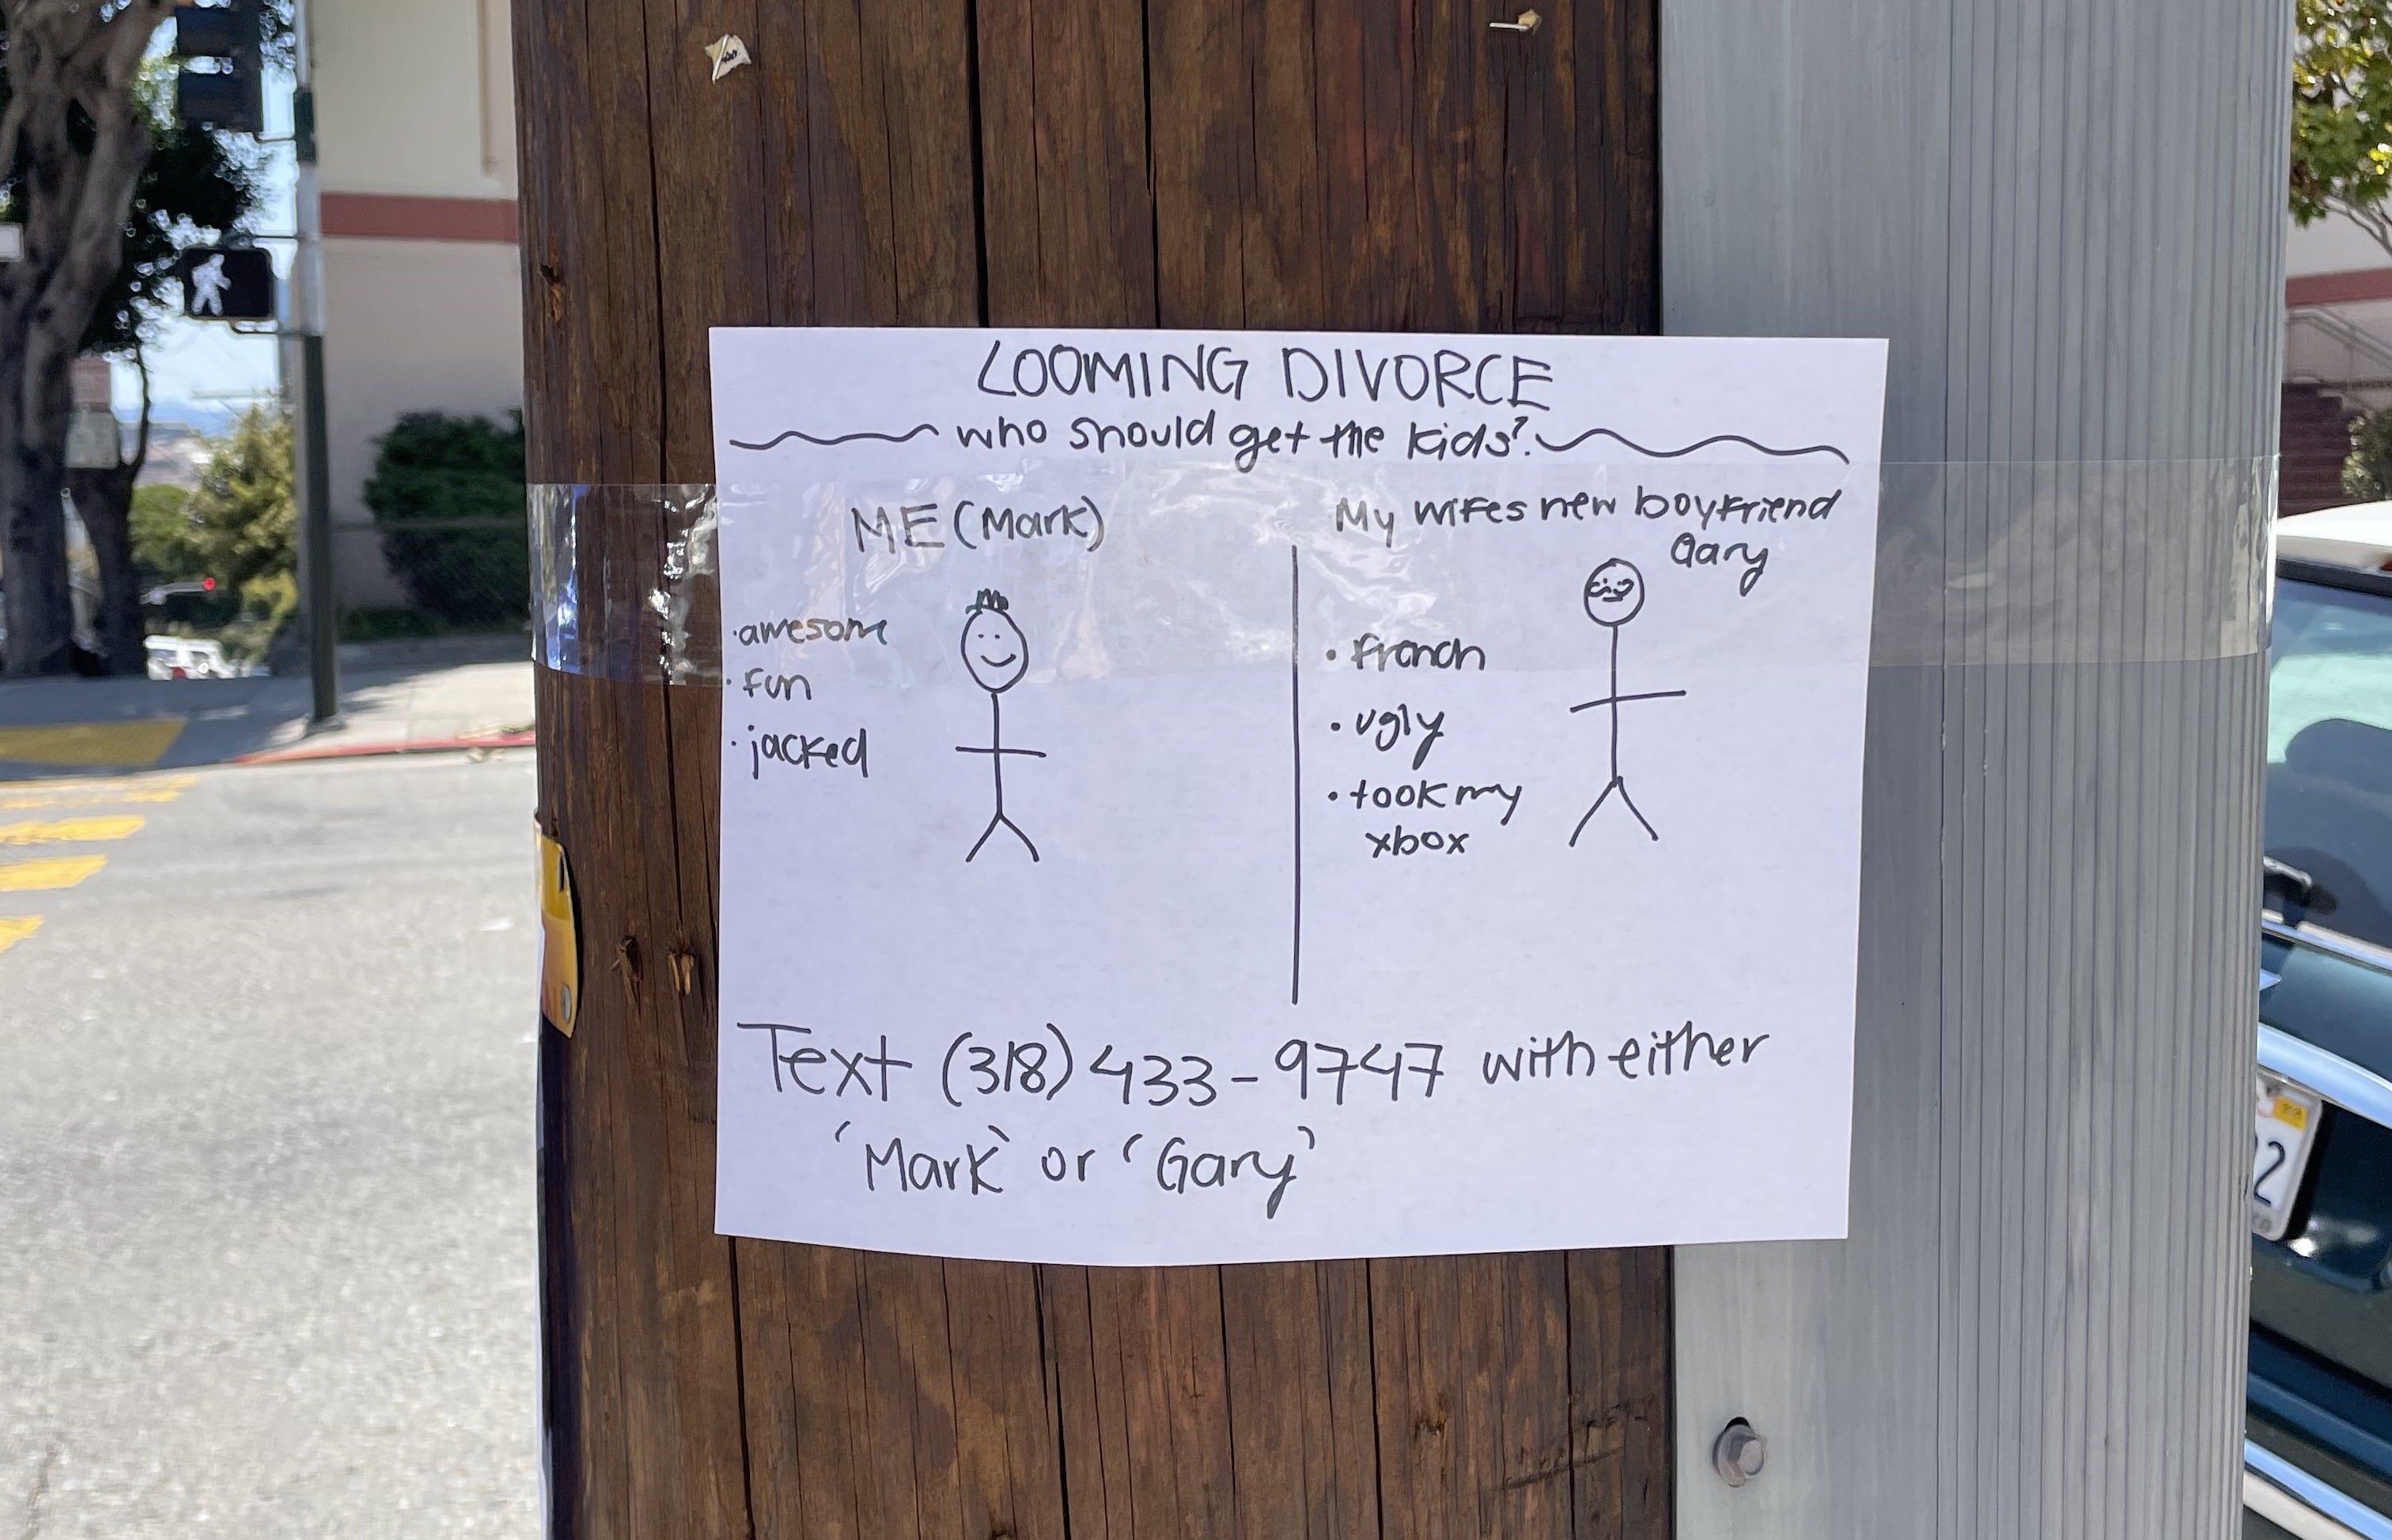 LOOMING DIVORCE
who should get the kids?
ME (Mark)
·awesome
·fun
·jacked
My wifes new boyfriend
Gary
·french
·ugly
·took my
xbox
Text (318) 433-9747 with either
'Mark' or 'Gary'
2